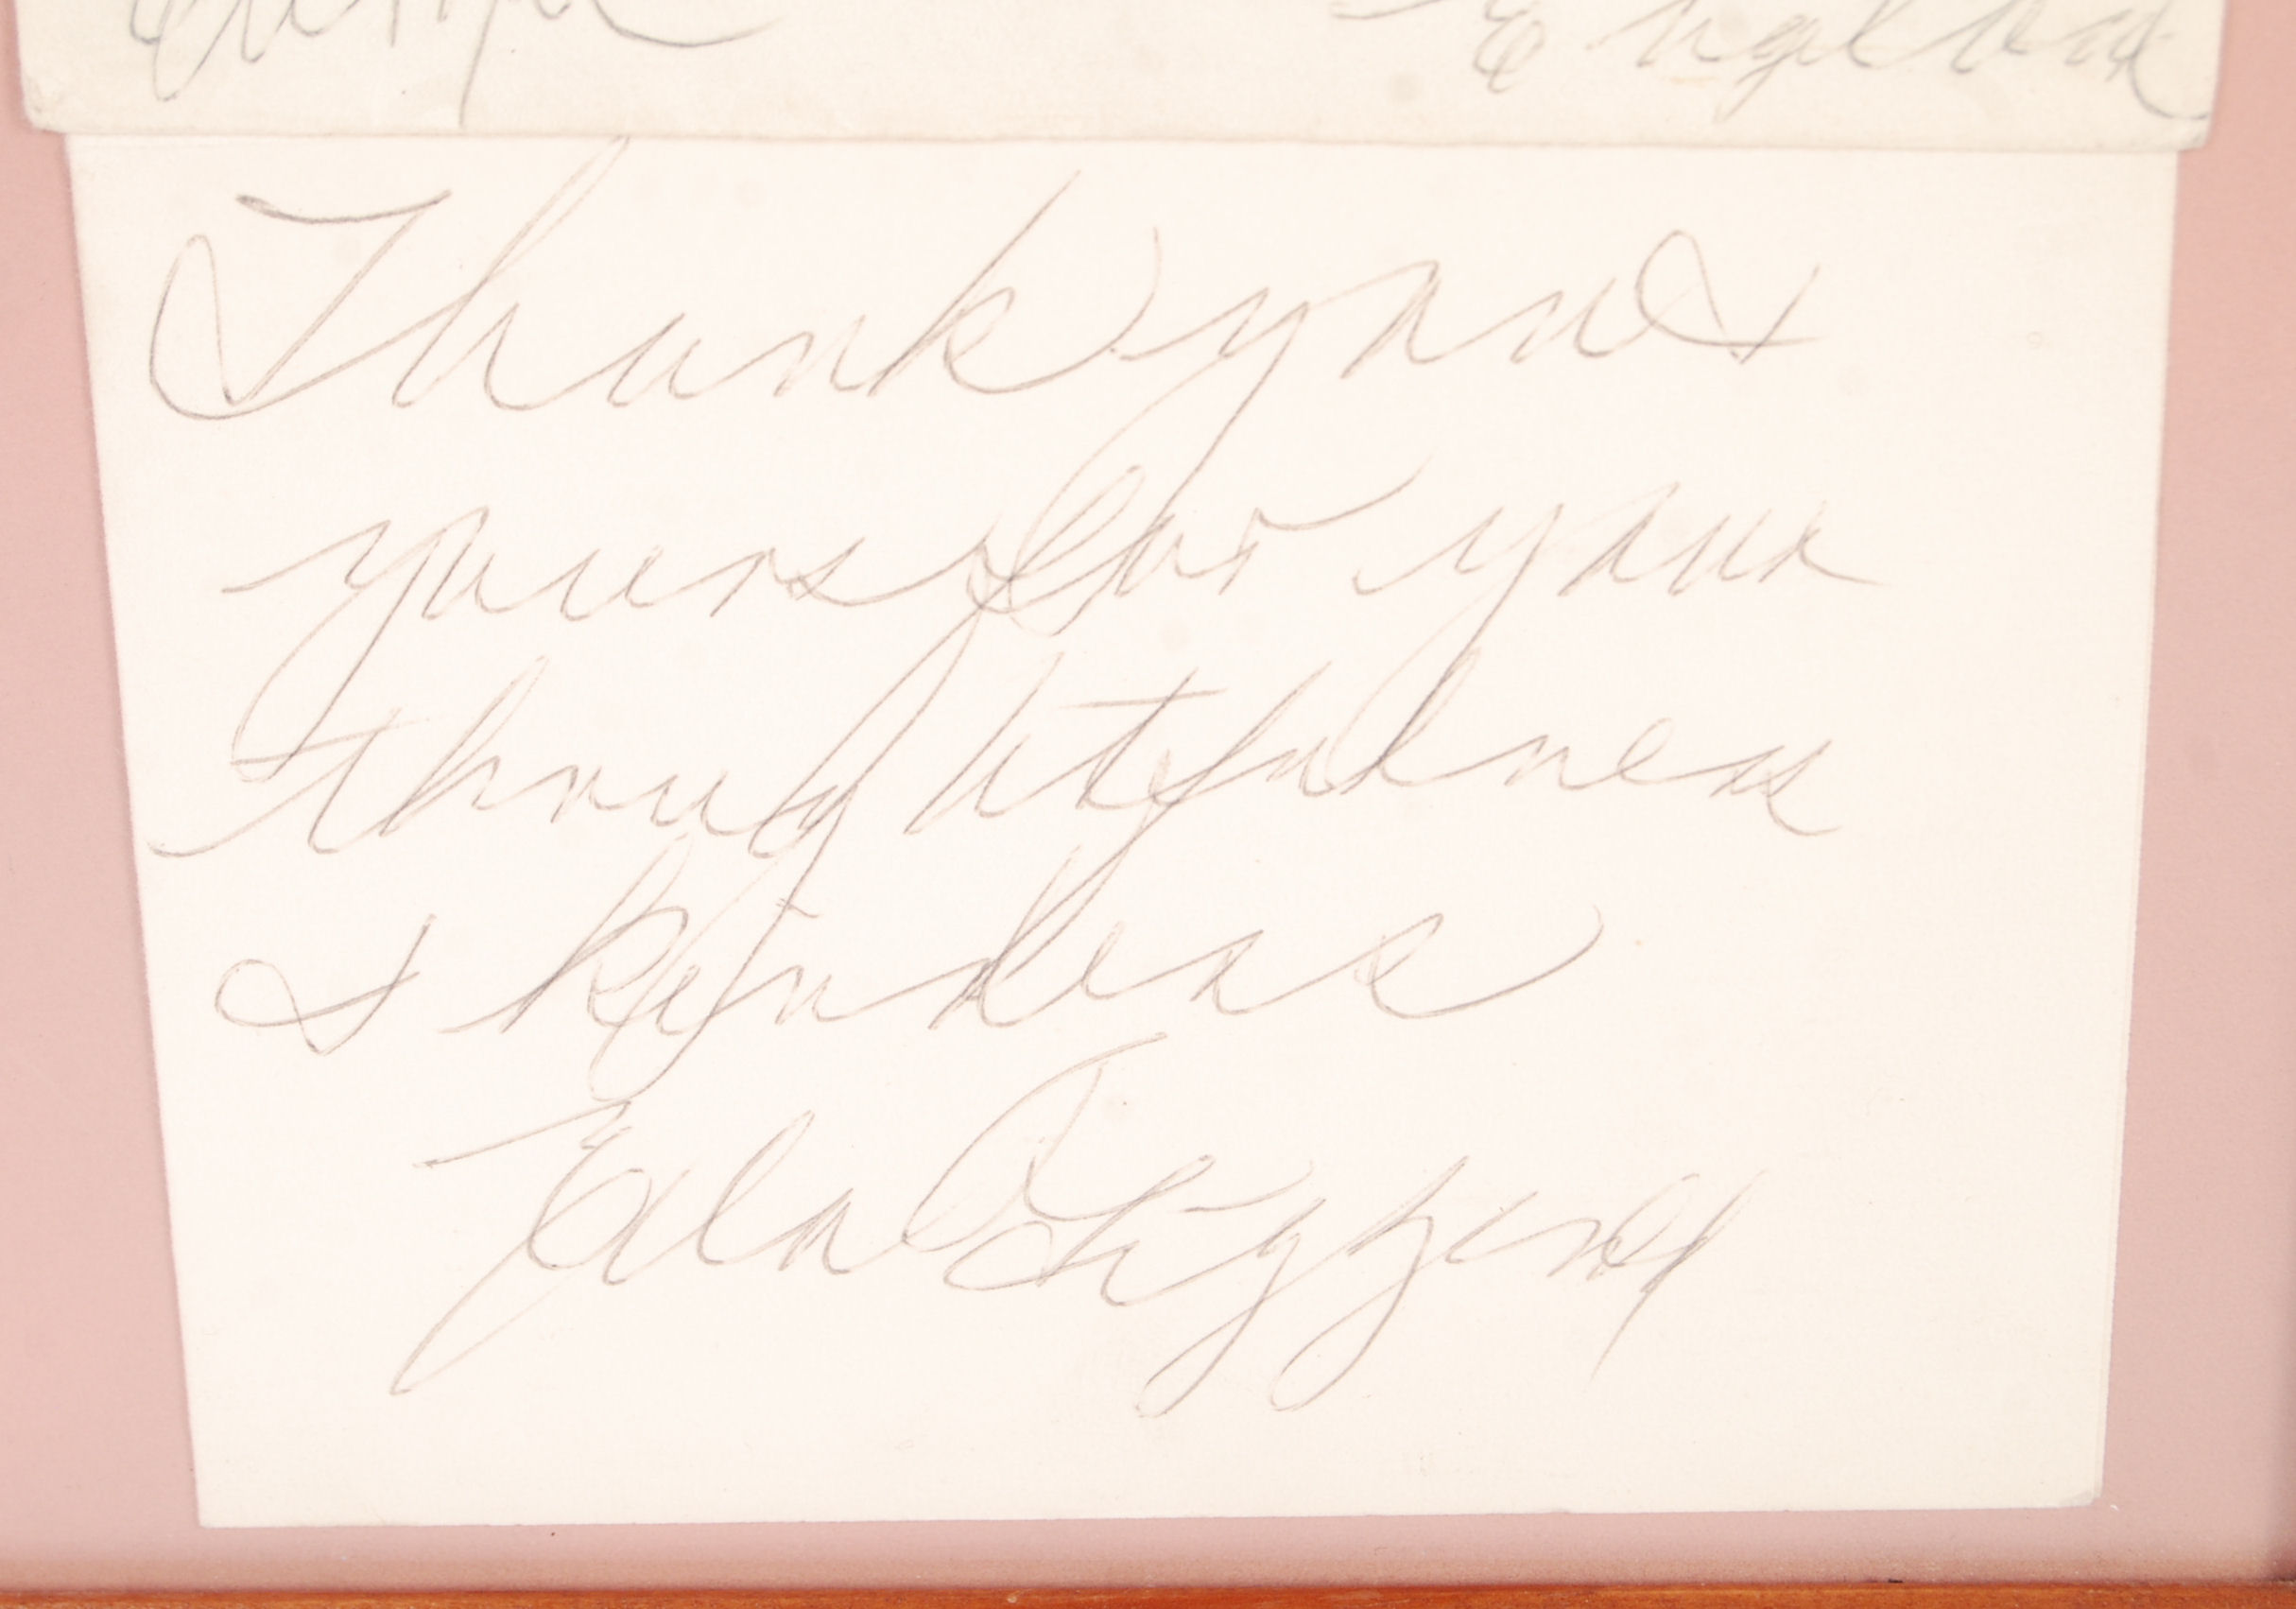 England
Thank you &
yours for your
thoughtfulness
& kindess